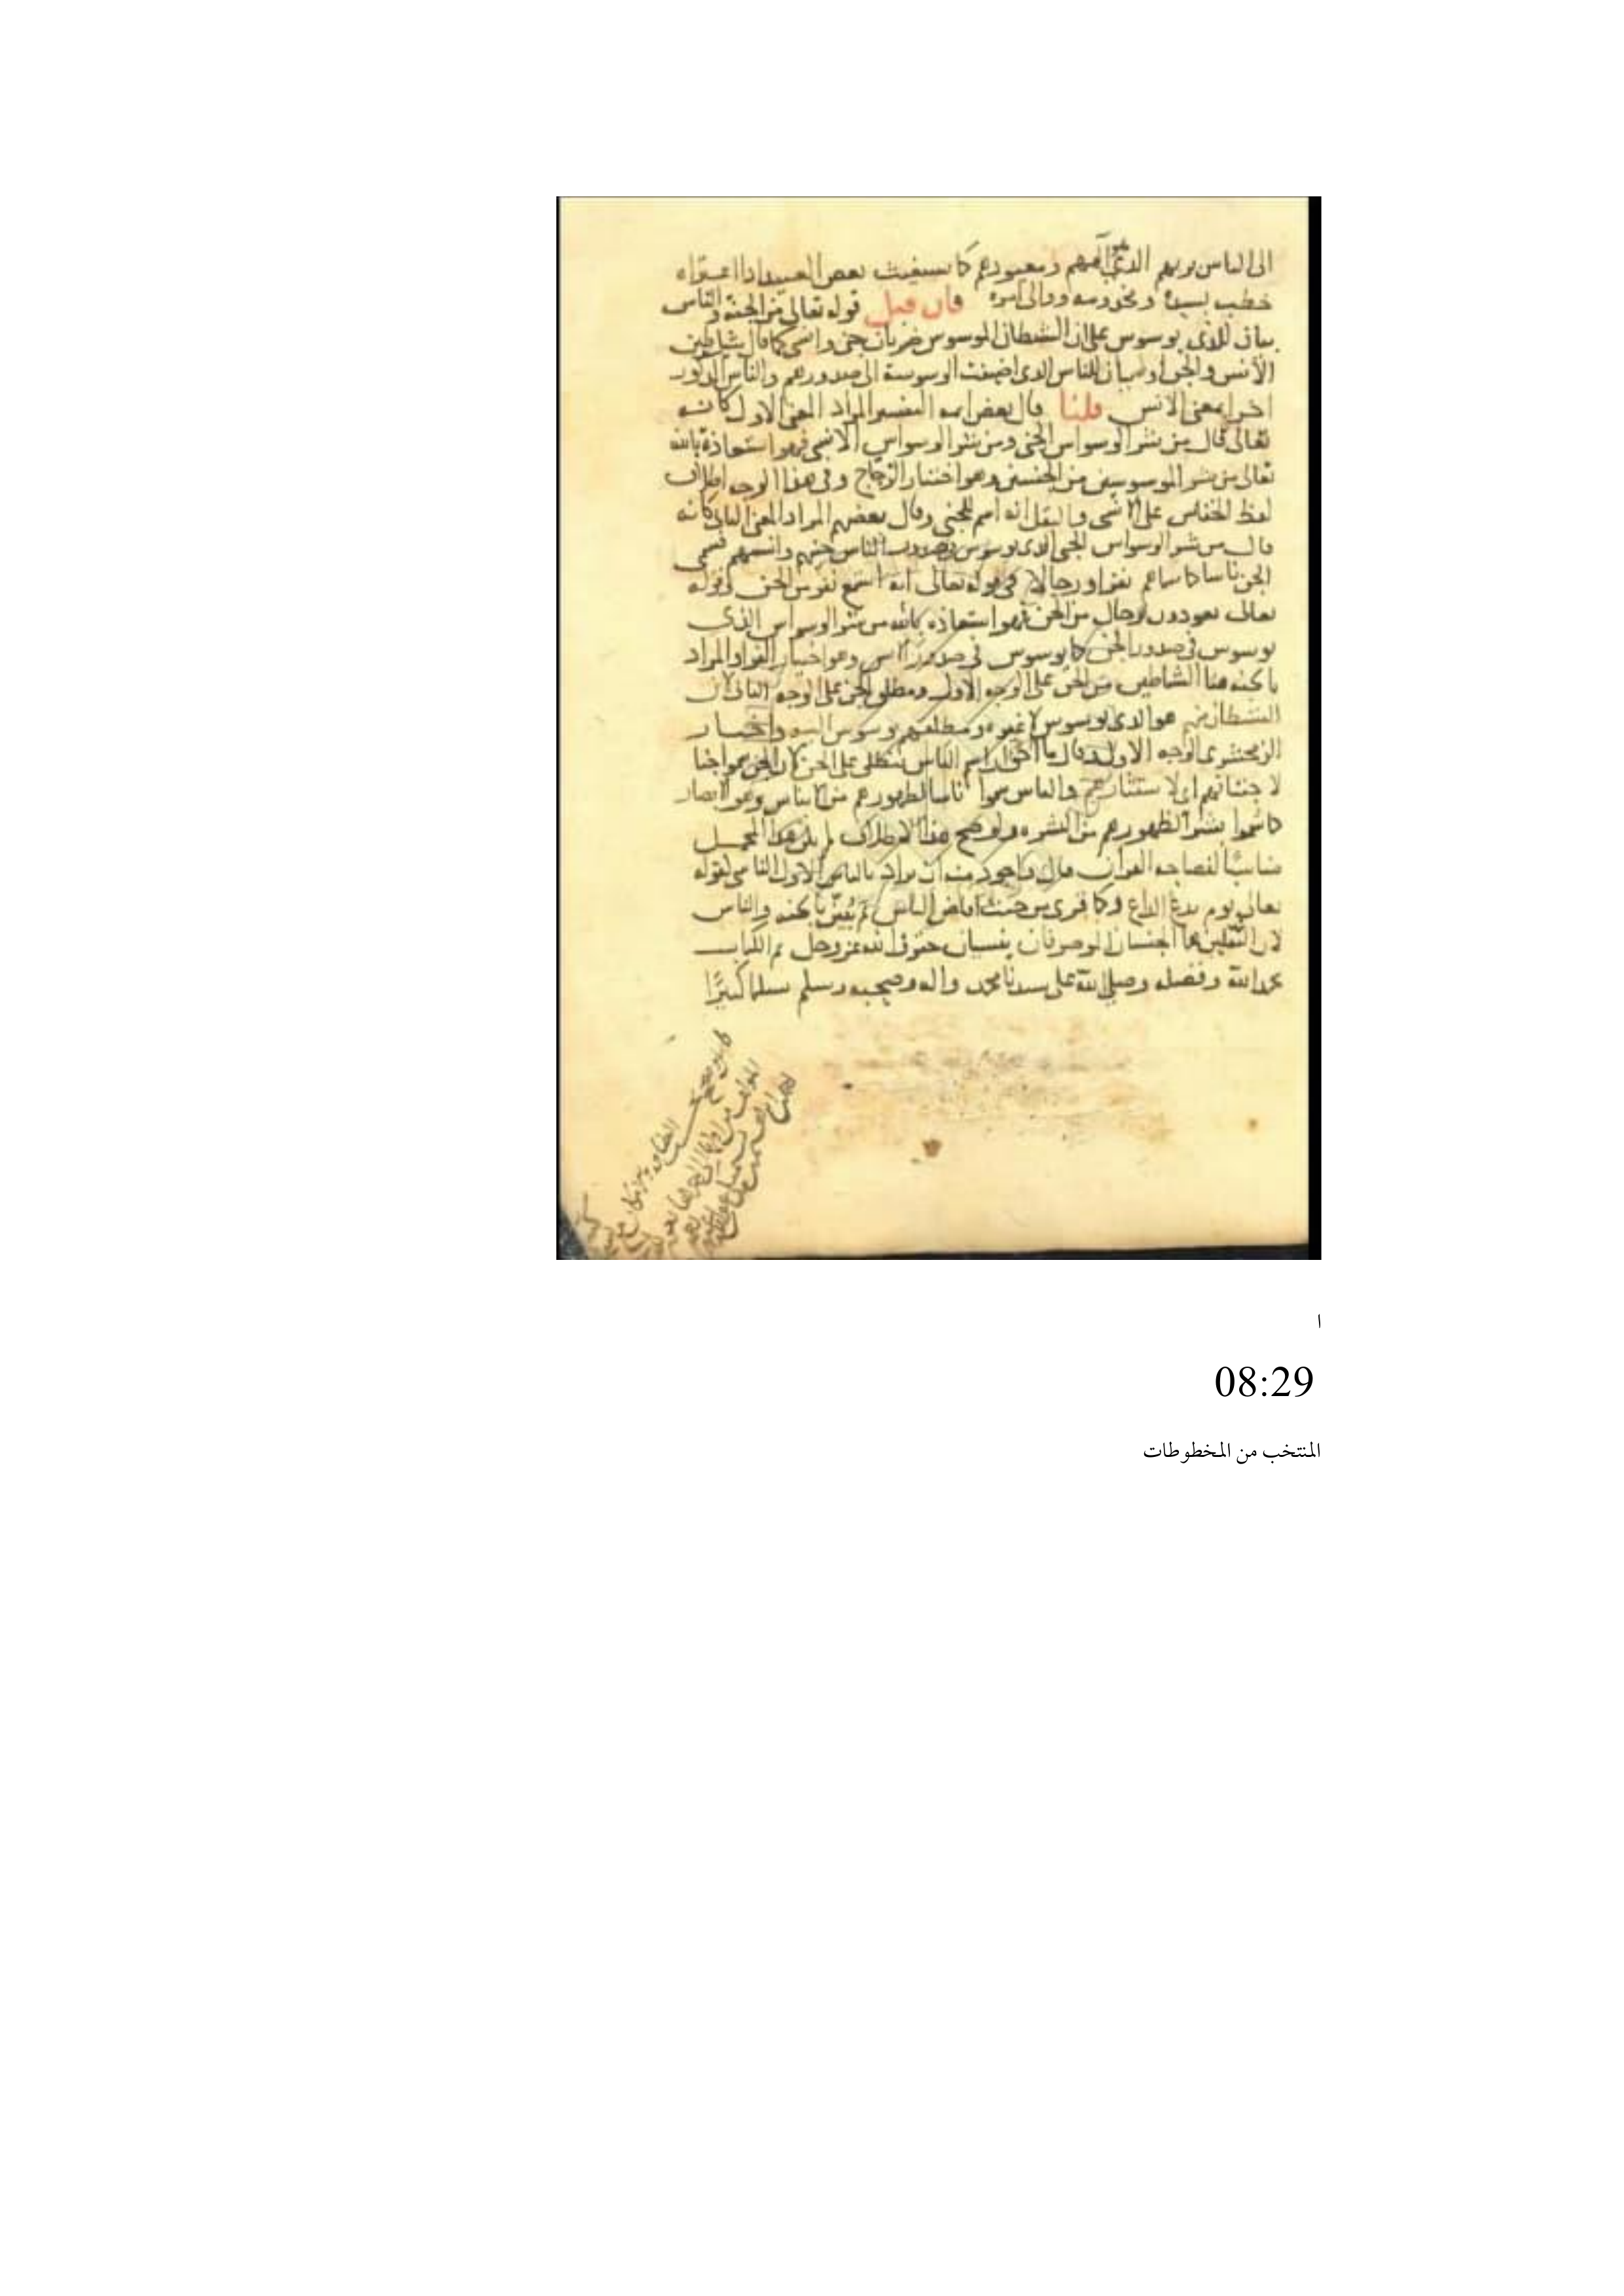 الى الناس بربهم الذي هو الههم ومعبودهم كما يستغيث بعض العبيد اذا اعتراه
خطب بسيده ومخدومه ووالى امره فان قيل قوله تعالى من الجنة والناس
بيان للذي يوسوس على ان الشيطان الموسوس ضربان جني وانسي كما قال شياطين
الانس والجن او بيان للناس الذي اضيفت الوسوسة الى صدورهم والناس المذكور
اخرا بمعنى الانس قلنا قال بعض ايمة التفسير المراد المعنى الاول كانه
تعالى قال من شر الوسواس الجني ومن شر الوسواس الانسي فهو استعاذة بالله
تعالى من شر الموسوسين من الجنسين وهو اختيار الزجاج وفي هذا الوجه اطلاق
لفظ الخناس على الانسي والنقل انه اسم للجني وقال بعضهم المراد المعنى الثاني كانه
قال من شر الوسواس الجني الذي يوسوس في صدور الناس جنهم وانسهم فسمى
الجن ناسا كما سماهم نفرا ورجالا في قوله تعالى انه استمع نفر من الجن وقوله
تعالى يعوذون برجال من الجن فهو استعاذة بالله من شر الوسواس الذي
يوسوس في صدور الجن كما يوسوس في صدور الناس وهو اختيار الفراء والمراد
بالجنة هنا الشياطين من الجن على الوجه الاول ومطلق الجن على الوجه الثاني لان
الشيطان منهم هو الذي يوسوس لا غيره ومطلقهم يوسوس اليه واختار
الزمخشري الوجه الاول وقال ما احق ان اسم الناس ينطلق على الجن لان الجن سموا جنا
لاجتنانهم اي لاستتارهم والناس سموا ناسا لظهورهم من الايناس وهو الابصار
كما سموا بشرا لظهورهم من البشرة ولو صح هذا الاطلاق لم يكن هذا المحمل
مناسبا لفصاحة القران قال واجود منه ان يراد بالناس الاول الناسي كقوله
تعالى يوم يدع الداع وكما قرئ من حيث افاض الناس ثم بين بالجنة والناس
لان الثقلين هما الجنسان الموصوفان بنسيان حقوق الله عز وجل تم الكتاب
بحمد الله وفضله وصلى الله على سيدنا محمد واله وصحبه وسلم تسليما كثيرا
ا
08:29
المنتخب من المخطوطات